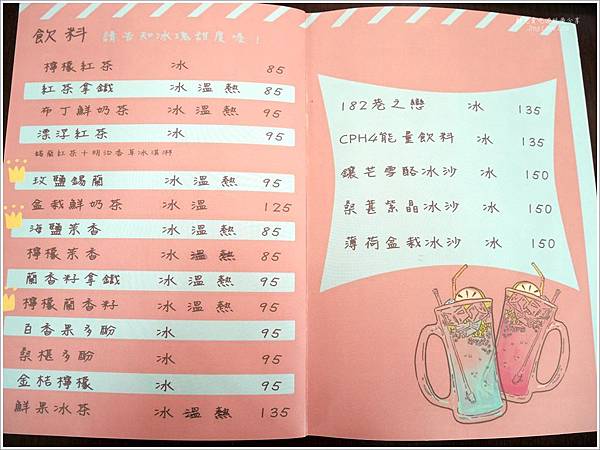 飲料 請告知冰塊甜度喔！
檸檬紅茶 冰 85
紅茶拿鐵 冰 溫 熱 85
布丁鮮奶茶 冰 溫 熱 95
漂浮紅茶 冰 95
錫蘭紅茶＋明治香草冰淇淋
玫鹽錫蘭 冰 溫 熱 95
盆栽鮮奶茶 冰 溫 125
海鹽茉香 冰 溫 熱 85
檸檬茉香 冰 85
蘭香籽拿鐵 冰 溫 熱 95
檸檬蘭香籽 冰 溫 熱 95
百香果多酚 冰 95
桑椹多酚 冰 95
金桔檸檬 冰 95
鮮果冰茶 冰 溫 熱 135
182巷之戀 冰 135
CPH4能量飲料 冰 135
鑲芒雪酪冰沙 冰 150
桑葚紫晶冰沙 冰 150
薄荷盆栽冰沙 冰 150